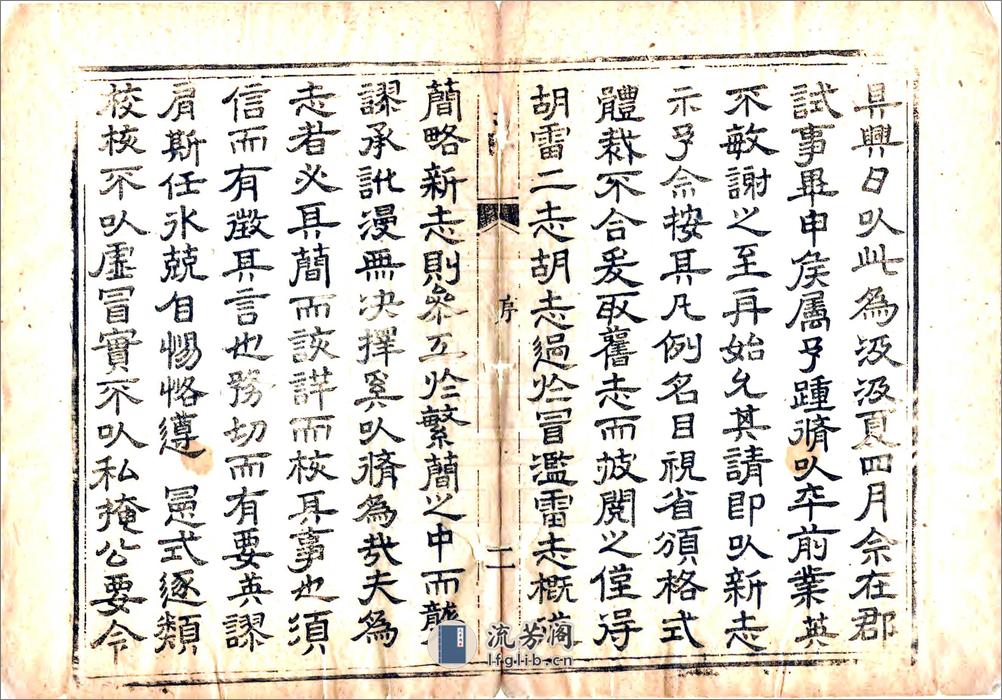 其興日以此為汲汲夏四月余在郡
試事畢申侯属予踵脩以卒前業英
不敏謝之至再始允其請即以新志
示予余按其凡例名目視省頒格式
體裁不合爰取舊志而披閱之僅得
胡雷二志胡志過於冒濫雷志概
序
二
簡略新志則參互於繁簡之中而
謬承訛漫無决擇奚以脩為哉夫為
志者必其簡而該詳而核其事也須
信而有徵其言也務切而有要英謬
肩斯任氷兢自惕恪遵 憲式逐類
挍核不以虛冒實不以私掩公要令
流芳阁
lfglib.cn